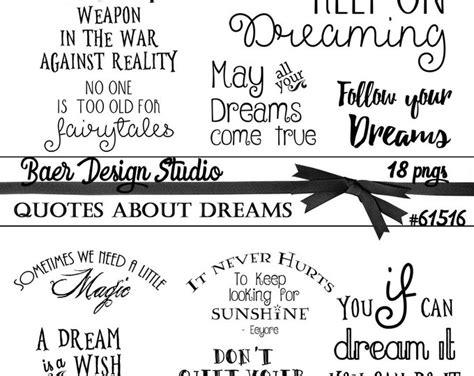 WEAPON
IN THE WAR
AGAINST REALITY
NO ONE
IS TOO OLD FOR
fairytales
KEEP ON
Dreaming
May all your
Dreams
come true
Follow your
Dreams
Baer Design Studio
18 pngs
QUOTES ABOUT DREAMS
#61516
SOMETIMES WE NEED A LITTLE
Magic
IT NEVER HURTS
To Keep
looking for
SUNSHINE
- Eeyore
YOU if CAN
dream it
YOU CAN DO IT
A DREAM
is a WISH
DON'T
QUIET YOUR